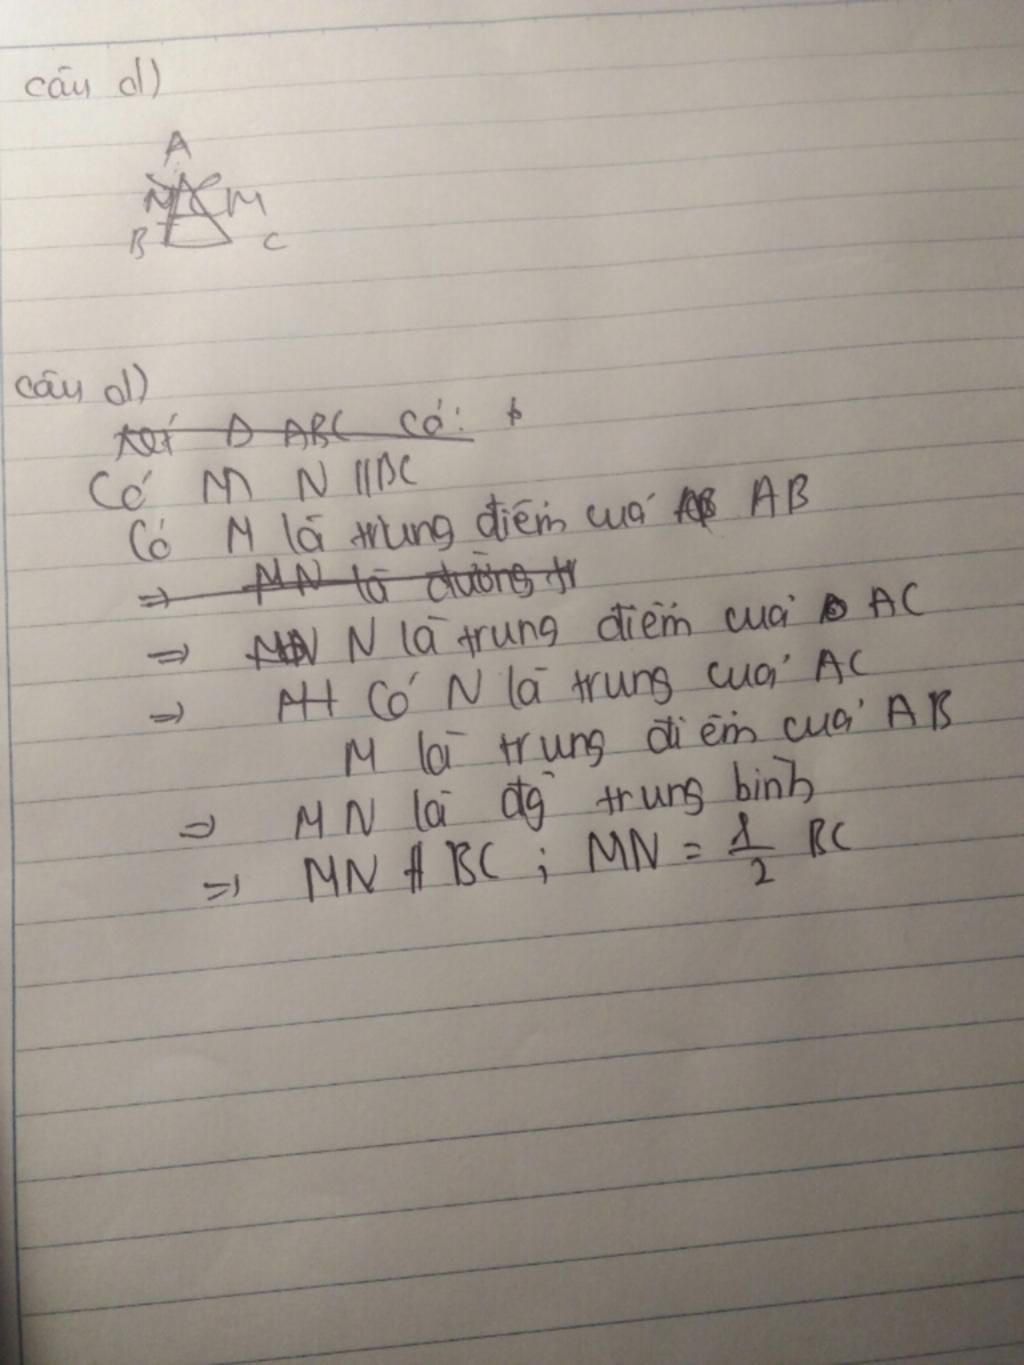 câu d)
A
N M
B C
câu d)
Xét Δ ABC có:
Có M N // BC
Có M là trung điểm cuả AB
=> MN là đường tr
=> N là trung điểm cuả AC
=> Có N là trung cuả AC
M là trung điểm cuả AB
=> MN là đg trung bình
=> MN // BC ; MN = 1/2 BC